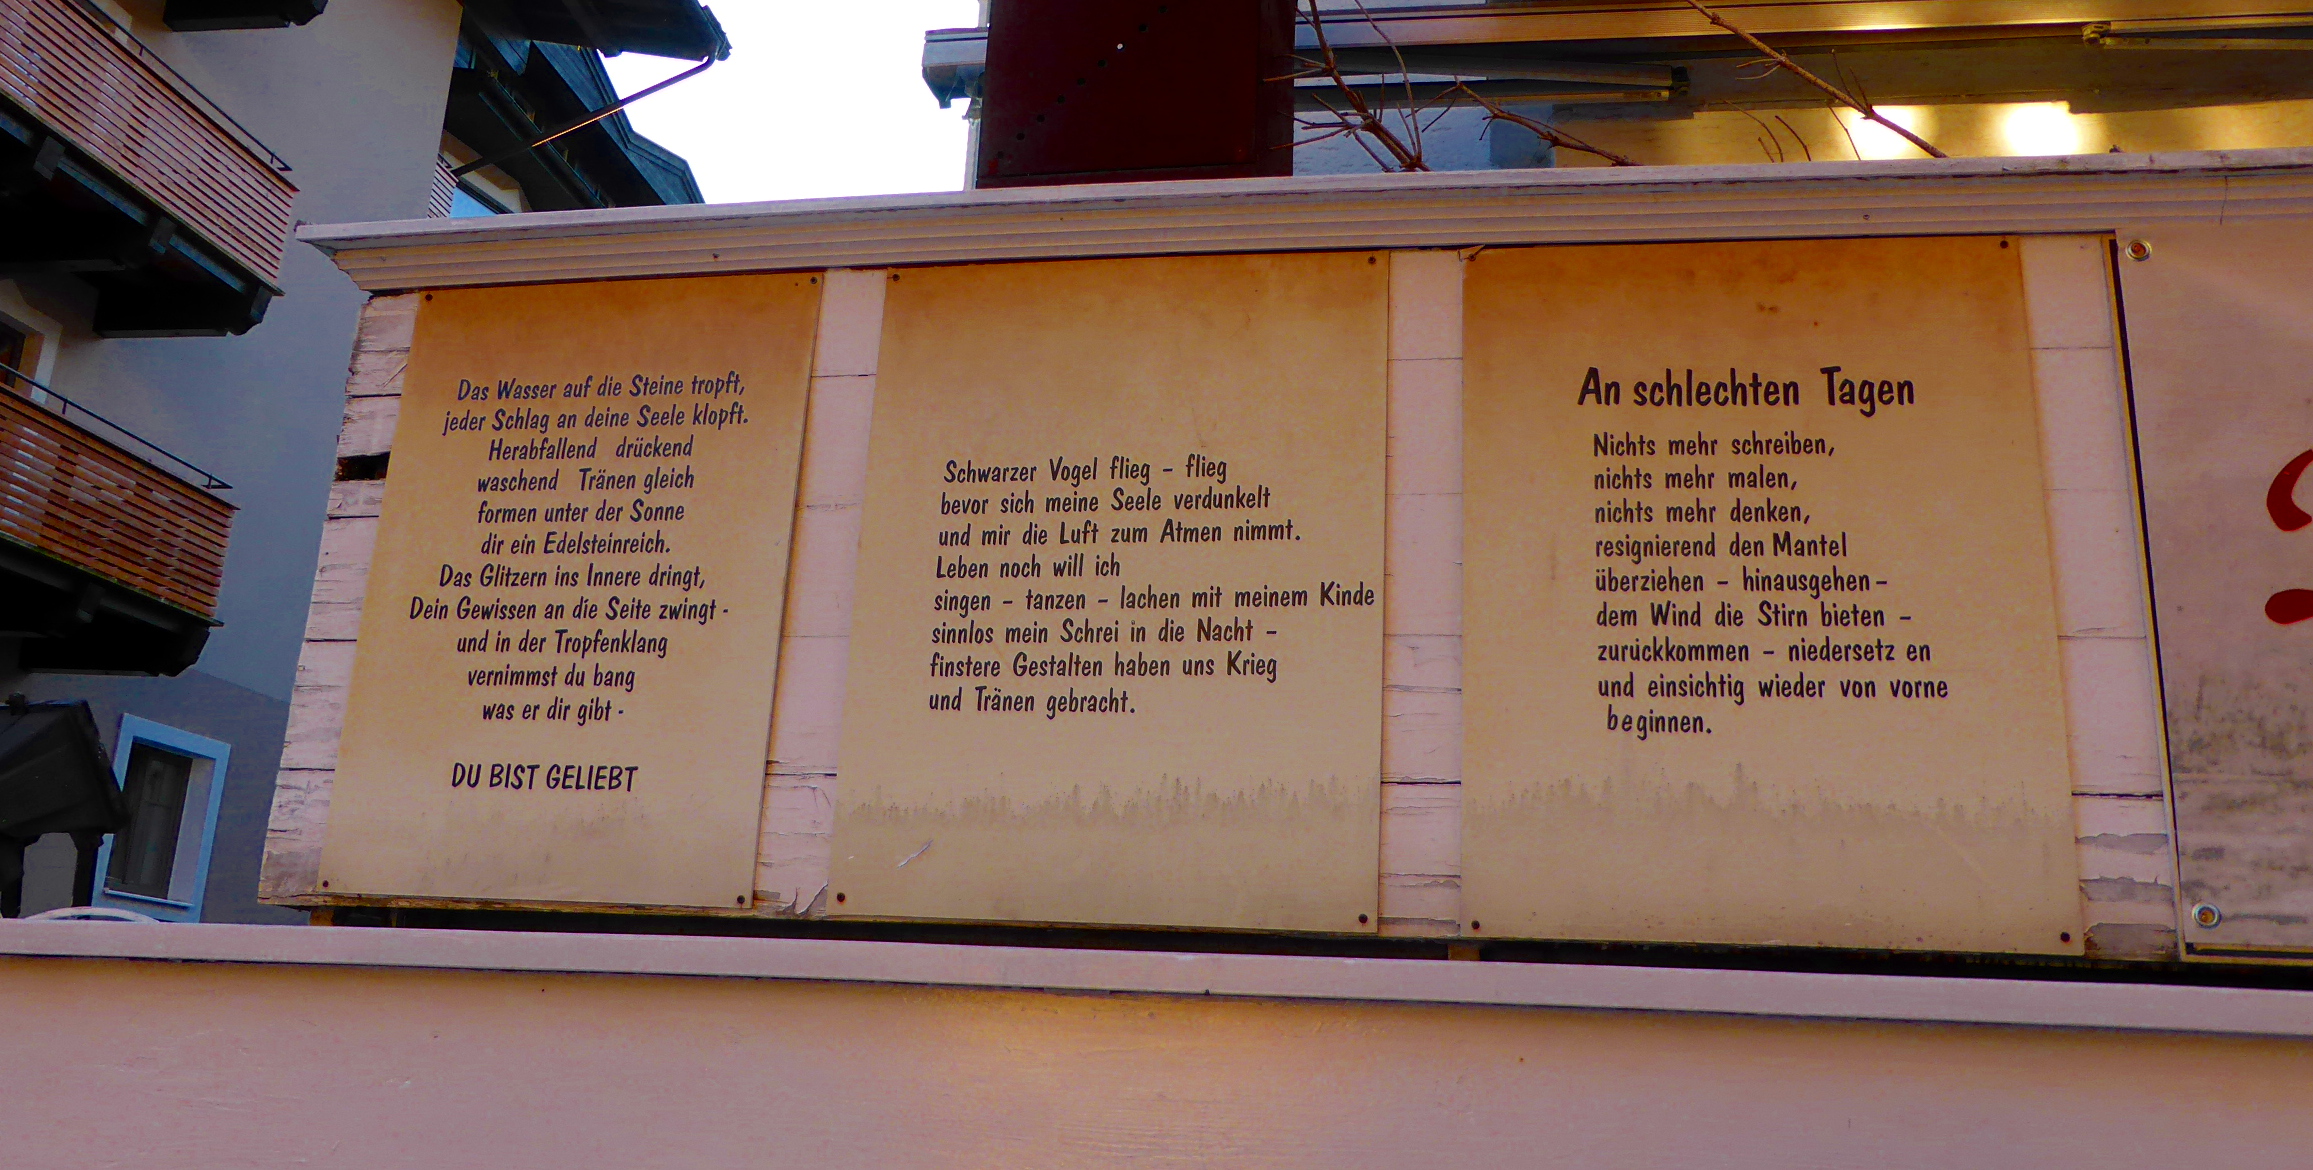 Das Wasser auf die Steine tropft,
jeder Schlag an deine Seele klopft.
Herabfallend drückend
waschend Tränen gleich
formen unter der Sonne
dir ein Edelsteinreich.
Das Glitzern ins Innere dringt,
Dein Gewissen an die Seite zwingt -
und in der Tropfenklang
vernimmst du bang
was er dir gibt -
DU BIST GELIEBT
Schwarzer Vogel flieg - flieg
bevor sich meine Seele verdunkelt
und mir die Luft zum Atmen nimmt.
Leben noch will ich
singen - tanzen - lachen mit meinem Kinde
sinnlos mein Schrei in die Nacht -
finstere Gestalten haben uns Krieg
und Tränen gebracht.
An schlechten Tagen
Nichts mehr schreiben,
nichts mehr malen,
nichts mehr denken,
resignierend den Mantel
überziehen - hinausgehen -
dem Wind die Stirn bieten -
zurückkommen - niedersetz en
und einsichtig wieder von vorne
beginnen.